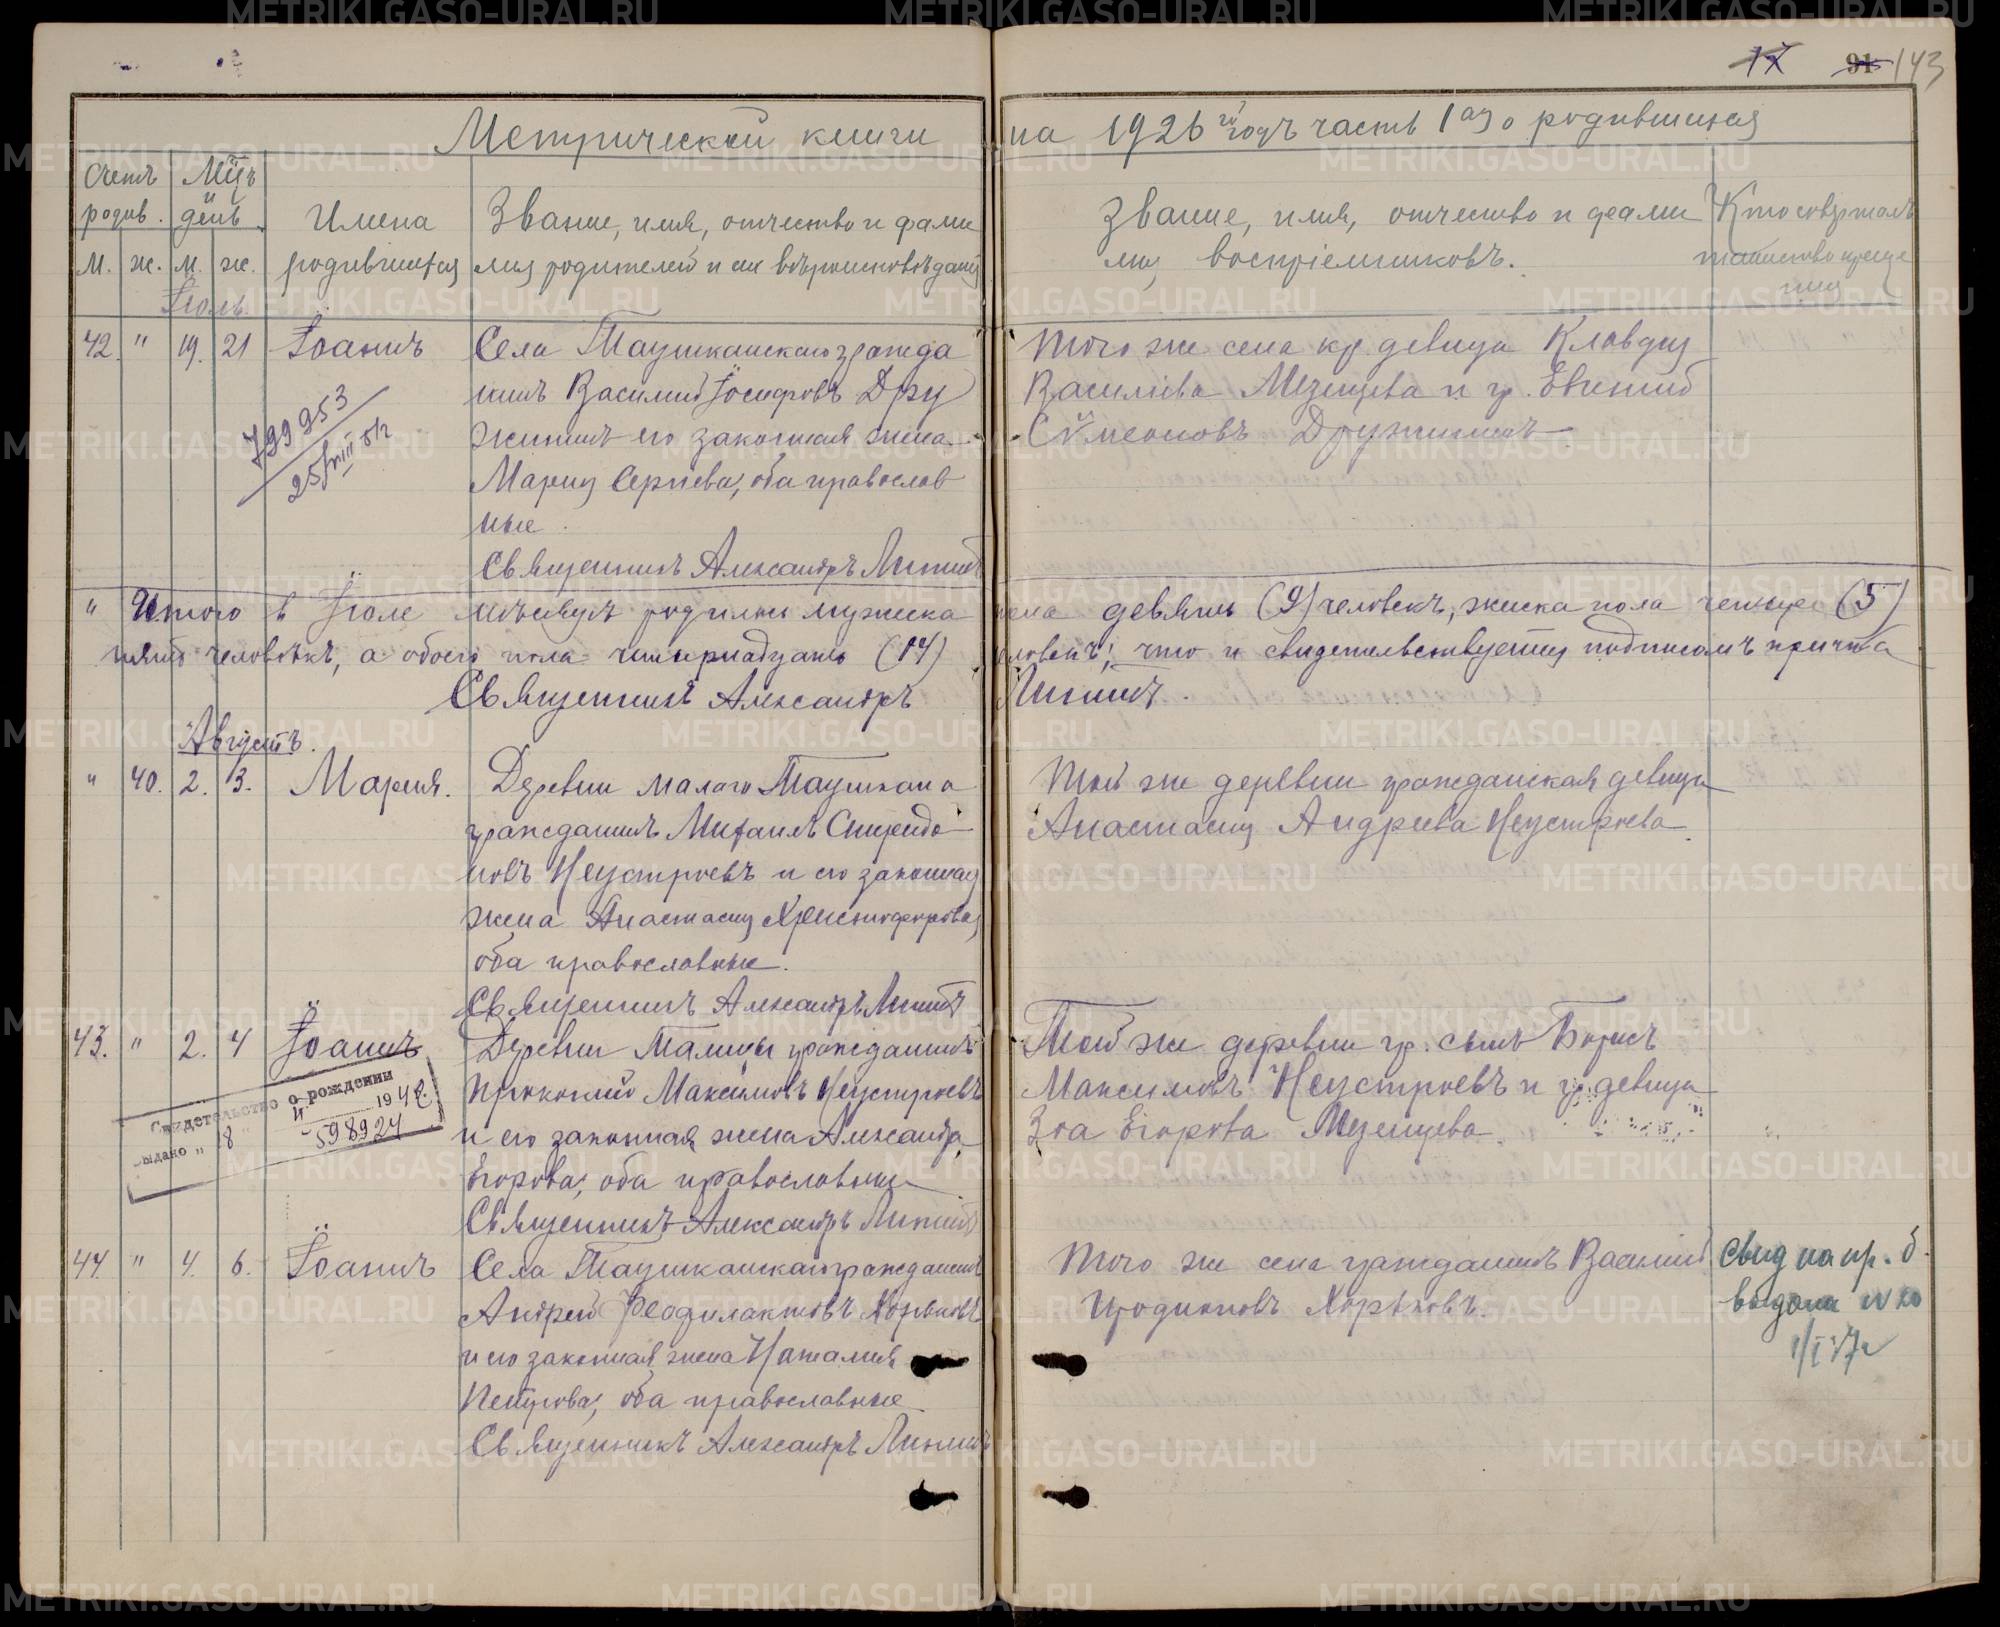 17 91 143
Метрической книги на 1926 й годъ часть 1ая о родившихся
Счетъ родив. Мцъ и день
М. ж. м. ж.
Имена родившихся
Званіе, имя, отчество и фами
лія родителей и ихъ вѣроисповѣданія
Званіе, имя, отчество и фами
лія воспріемниковъ.
Кто совершалъ
таинство креще
нія
Іюль
42. " 19. 21 Іоаннъ
Села Таушканскаго гражда
нинъ Василий Іосифовъ Дру
жининъ его законная жена
Мария Сергіева, оба православ
ные.
Священникъ Александръ
Того же села кр. девица Клавдия
Василіева Мезенцева и гр. Евгений
Сѵмеоновъ Дружининъ
799953
25/VIII
" Итого в Іюле мѣсяцѣ родилось мужска
го пола девять (9) человекъ, женска пола четыре (5)
пять человѣкъ, а обоего пола четырнадцать (14)
человекъ, что и свидетельствуется подписомъ причта
Священникъ Александръ
Августъ.
" 40. 2. 3. Мария.
Деревни малаго Таушкана
гражданинъ Михаилъ Спиридо
новъ Неустроевъ и его законная
жена Анастасия Христофорова,
оба православные.
Священникъ Александръ
Той же деревни гражданская девица
Анастасия Андреева Неустроева.
43. " 2. 4 Іоаннъ
Деревни Талицы гражданинъ
Прокопий Максимовъ Неустроевъ
и его законная жена Александра
Егорова, оба православные
Священникъ Александръ
Той же деревни гр. сынъ Борисъ
Максимовъ Неустроевъ и гр. девица
Зоа Егорова Мезенцева.
Свидетельство о рождении
Выдано " 8 " 1942.
598924
44. " 4. 6. Іоаннъ
Села Таушканскаго гражданинъ
Андрей Феофилактовъ Хорьковъ
и его законная жена Наталия
Петрова, оба православные.
Священникъ Александръ
Того же села гражданинъ Василий
Иродионовъ Хорьковъ.
Свид на пр. б.
выдана
1/I 37г
METRIKI.GASO-URAL.RU